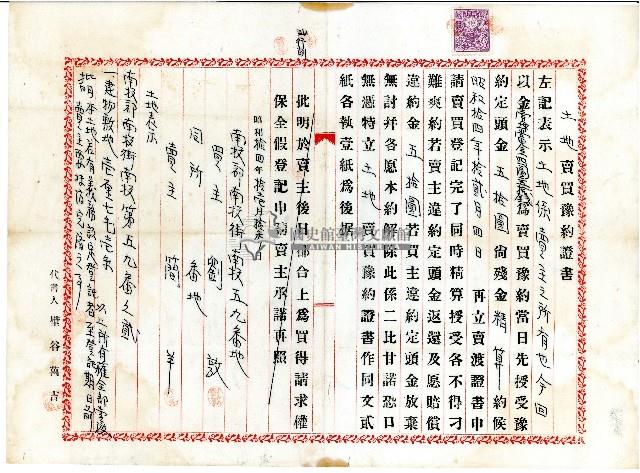 土地賣買豫約證書
左記表示土地係賣主之所有也今回
以金 賣買豫約當日先授受豫
約定頭金五拾圓尚殘金精算約候
昭和拾四年拾貳月四日 再立賣渡證書申
請賣買登記完了同時精算授受各不得刁
難爽約若賣主違約定頭金返還及愿賠償
違約金五拾圓若買主違約定頭金放棄
無討幷各愿本約解除此係二比甘諾恐口
無憑特立土地賣買豫約證書作同文貳
紙各執壹紙為後據
批明於賣主後日都合上為買得請求權
保全假登記申請賣主承諾再照
昭和拾四年拾 月拾 
南投郡南投街南投五九番地
買主 劉 敦
同所 番地
賣主 簡 羊
土地表示
南投郡南投街南投第五九番之貳
一建物敷地 以上所有權全部
批明本土地若有義務設定登記者至登記期日前
賣主
代書人 壁谷萬吉
國史館臺灣文獻館
TAIWAN HISTORICA